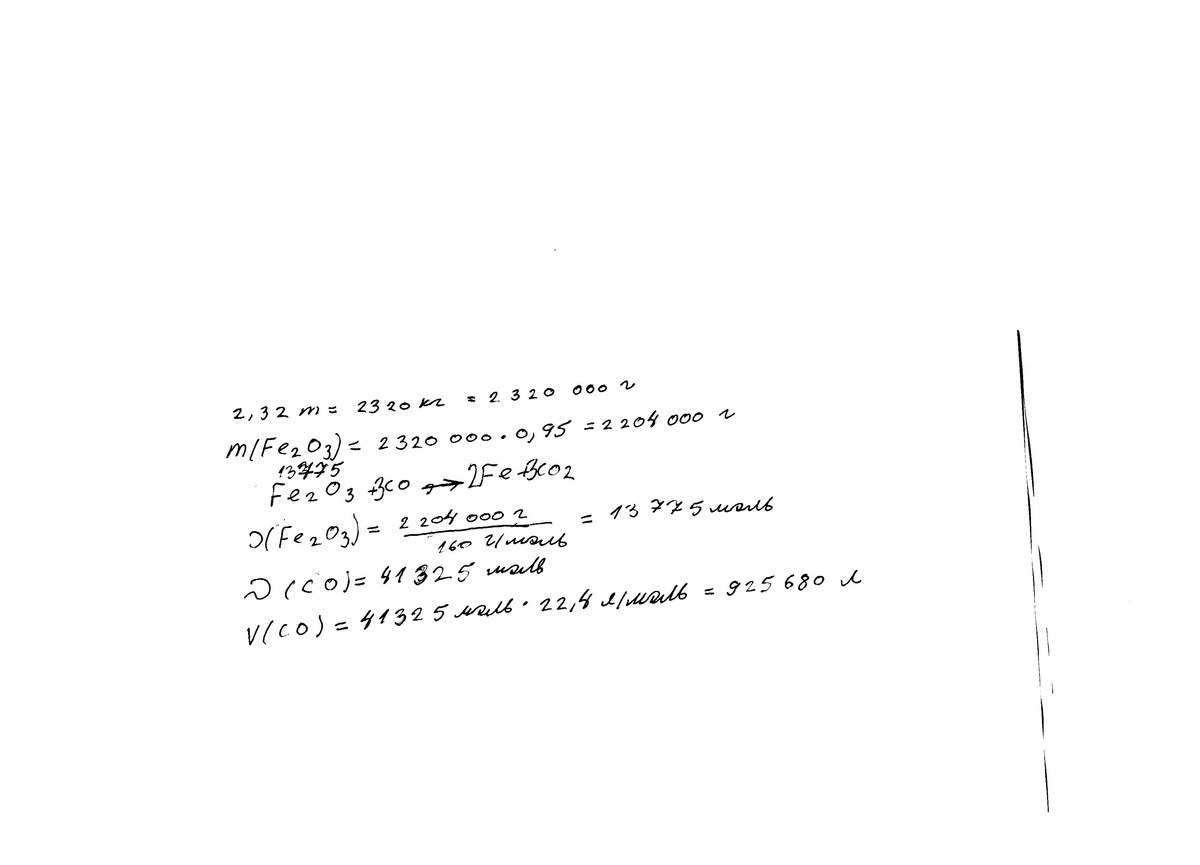 2,32 т = 2320 кг = 2 320 000 г
m(Fe2O3) = 2320 000 · 0,95 = 2204 000 г
13775
Fe2O3 + 3CO → 2Fe + 3CO2
υ(Fe2O3) = 2 204 000 г / 160 г/моль = 13 775 моль
υ(CO) = 41325 моль
V(CO) = 41325 моль · 22,4 л/моль = 925 680 л